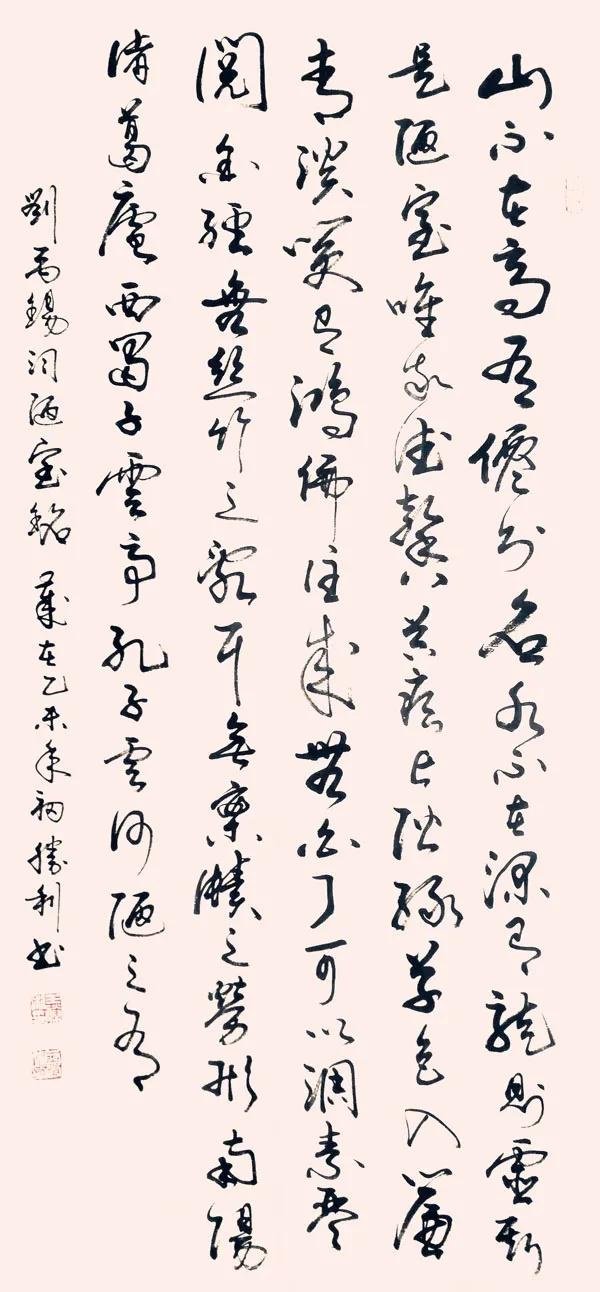 山不在高有僊則名水不在深有龍則靈斯
是陋室唯吾德馨苔痕上階綠草色入簾
青談笑有鴻儒往來無白丁可以調素琴
閱金經無絲竹之亂耳無案牘之勞形南陽
諸葛廬西蜀子雲亭孔子云何陋之有
劉禹錫詞陋室銘 歲在乙未年初勝利書